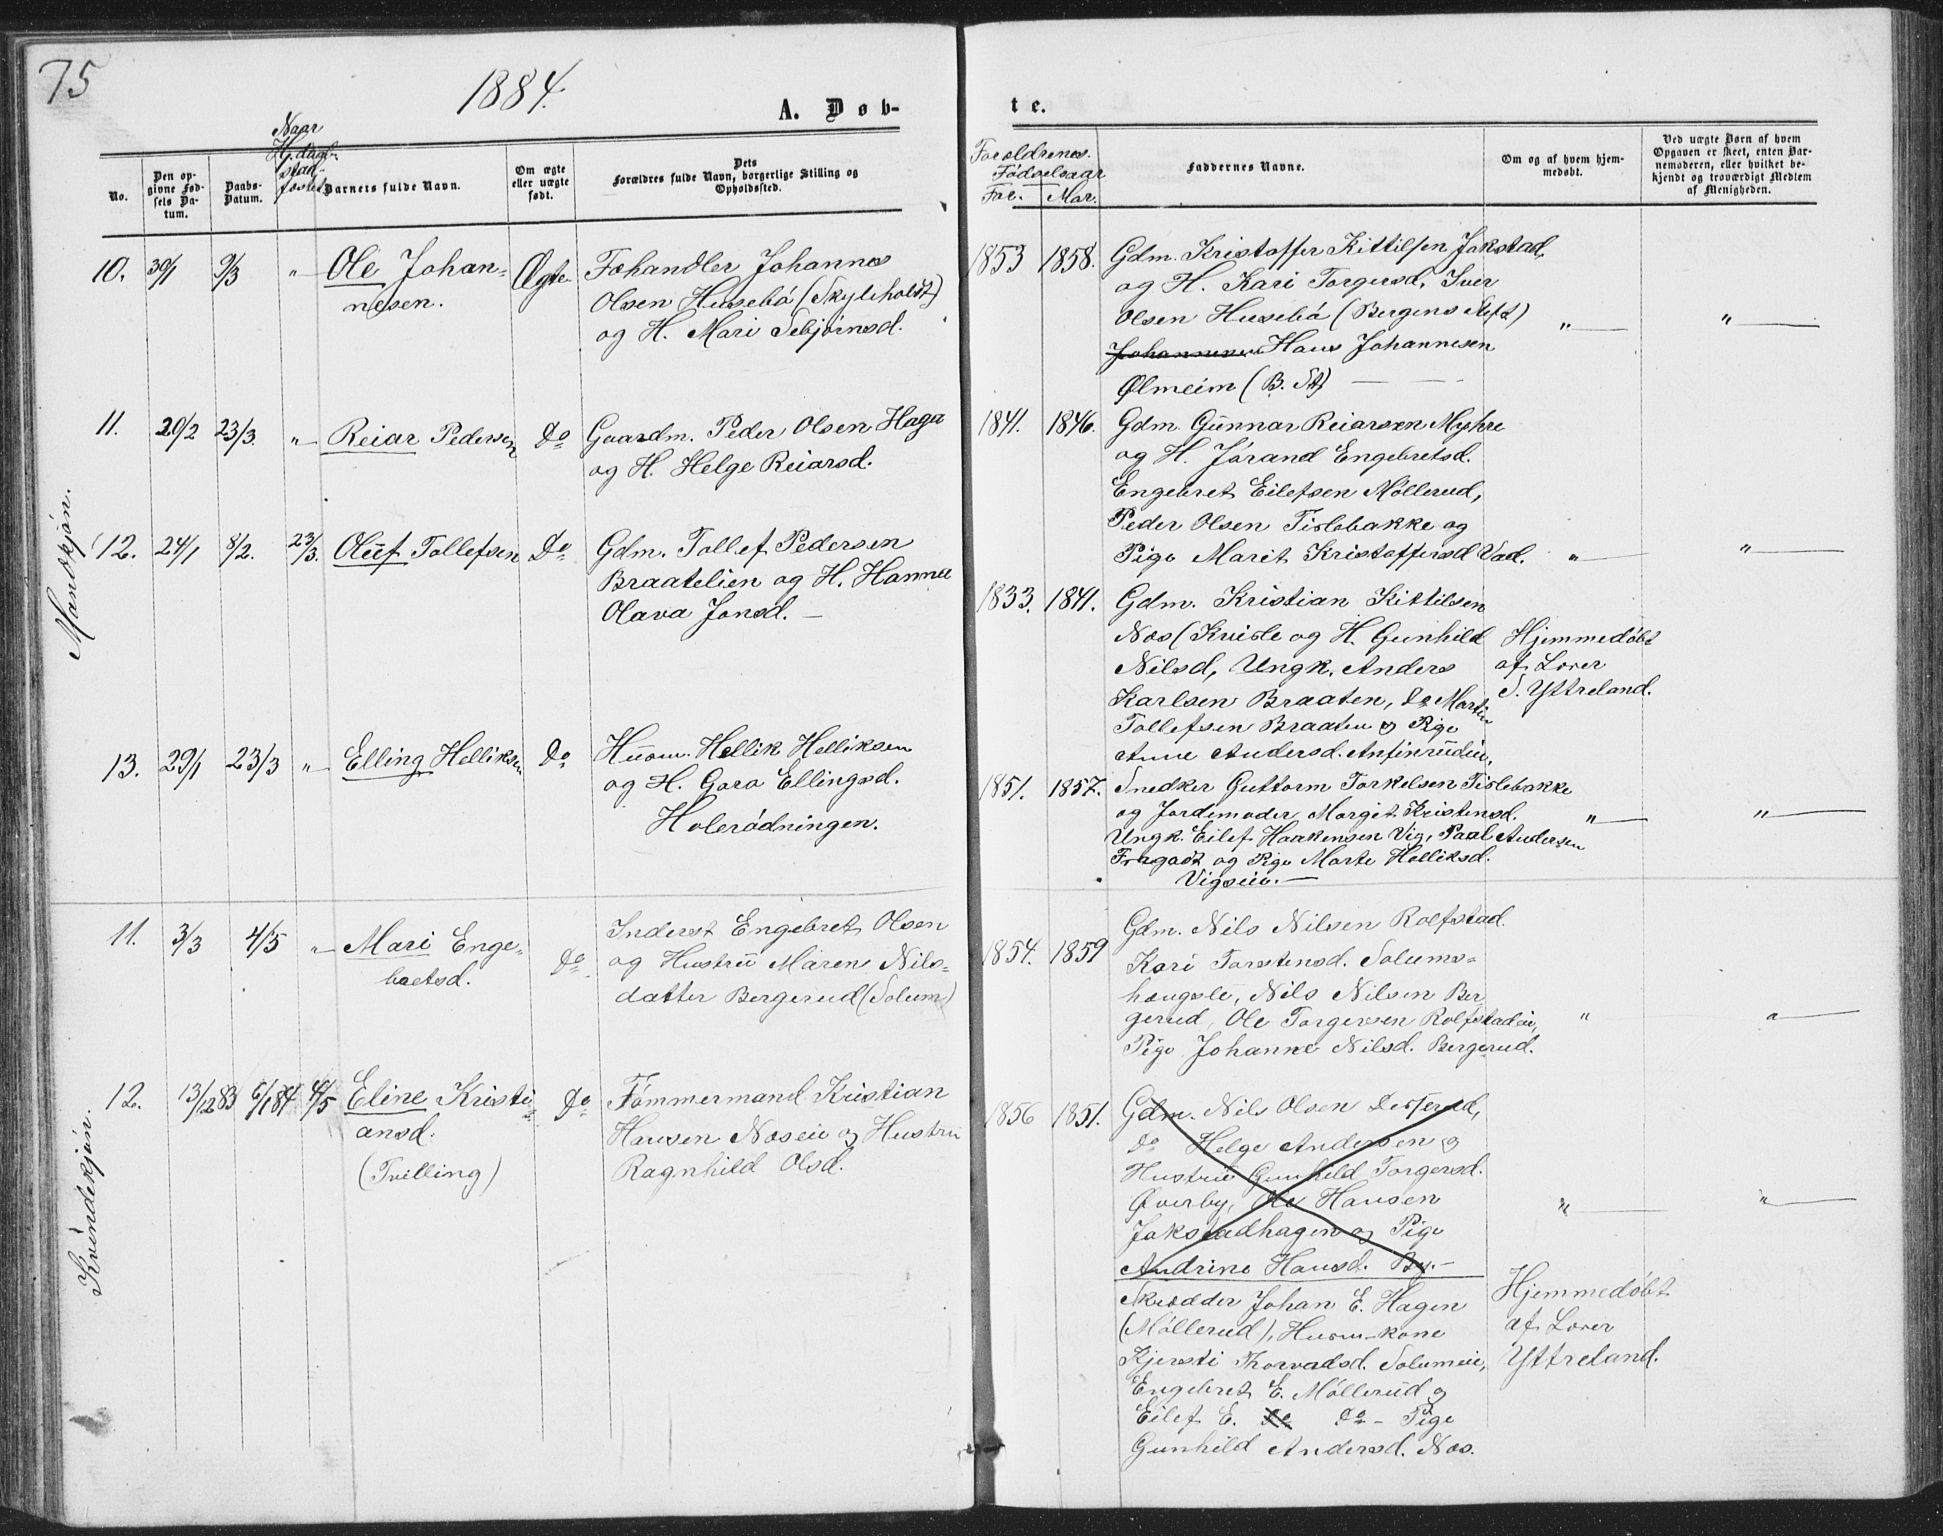 75
1884.
A. Døb-
te.
Naar
Hj.døbt
stad-
fæstet
No.
Den op-
givne Fød-
sels Da-
tum.
Daabs-
Datum.
Barnets fulde Navn.
Om ægte
eller uægte
født.
Dets
Forældres fulde Navn, borgerlige Stilling og
Opholdssted.
Forældrenes
Fødselsaar
Far. Mor.
Faddernes Navne.
Om og af hvem hjem-
medøbt.
Ved uægte Børn af hvem
Opgaven er skeet, enten Bar-
nemoderen, eller hvilket be-
kjendt og troværdigt Medlem
af Menigheden.
Mandkjøn.
10. 30/1 9/3 " Ole Johan-
nesen.
Ægte
Fæhandler Johannes
Olsen Husebø (Skyleholdt)
og H. Mari Sebjørnsd.
1853 1858.
Gdm. Kristoffer Kittilsen Jokstad,
og H. Kari Torgersd, Iver
Olsen Husebø (Bergens Stift)
Johannesen Hans Johannesen
Ølmeim (B. St)
" "
11. 20/2 23/3. " Reiar Pedersen Do
Gaardm. Peder Olsen Haga
og H. Helge Reiarsd.
1841. 1846.
Gdm. Gunnar Reiarsen Myhre
og H. Jørand Engebretsd.
Engebret Eilefsen Møllerud,
Peder Olsen Tislebakke og
Pige Marit Kristoffersd Vad.
" "
12. 24/1 8/2. 23/3. Oluf Tollefsen Do
Gdm. Tollef Pedersen
Braatelien og H. Hanna
Olava Jonsd. —
1833. 1841.
Gdm. Kristian Kittilsen
Nos (Kvisle og H. Gunhild
Nilsd, Ungk. Anders
Karlsen Braaten, Do Martin
Tollefsen Braaten og Pige
Anne Andersd. Anfinrudei.
Hjemmedøbt
af Lærer
S. Yttreland.
13. 29/1 23/3 " Elling Helliksen Do
Husm. Hellik Helliksen
og H. Goro Ellingsd.
Holerødningen.
1851. 1857.
Snedker Guttorm Torkelsen Tislebakke
og Jordemoder Margit Kristensd.
Ungk. Eilef Haakensen Vig, Paal Andersen
Fragodt og Pige Marte Helliksd.
Vigseie. —
" "
Kvindekjøn.
11. 3/3 4/5 " Mari Enge-
bretsd.
Do
Inderst Engebret Olsen
og Hustru Maren Nils-
datter Bergerud (Solum)
1854. 1859
Gdm. Nils Nilsen Rolfstad.
Kari Torstensd. Solums-
haugsle, Nils Nilsen Ber-
gerud, Ole Torgersen Rolfstadeie,
Pige Johanne Nilsd. Bergerud.
" "
12. 13/12 83 6/1 84 4/5 Eline Kristi-
ansd.
(Tvilling)
Do
Tømmermand Kristian
Hansen Noseie og Hustru
Ragnhild Olsd.
1856 1851.
Gdm. Nils Olsen Desserud,
Do Helge Andersen og
Hustru Gunhild Torgersd.
Øverby, Ole Hansen
Jokstadhagen og Pige
Andrine Hansd. By.—
" "
Skrædder Johan E. Hagen
(Møllerud), Husm-kone
Kjersti Thorvadsd. Solumeie,
Engebret E. Møllerud og
Eilef E. Do Do - Pige
Gunhild Andersd. Nos.
Hjemmedøbt
af Lærer
Yttreland.